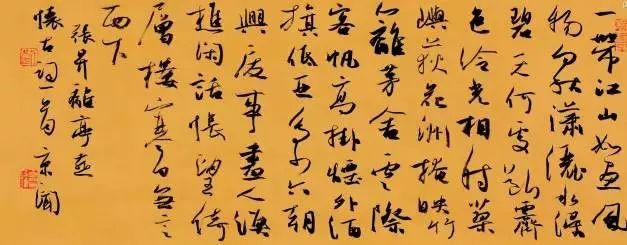 一帶江山如畫風
物向秋瀟灑水浸
碧天何處斷霽
色冷光相射蓼
嶼荻花洲掩映竹
籬茅舍雲際
客帆高掛煙外酒
旗低亞多少六朝
興廢事盡入漁
樵閑話悵望倚
層樓寒日無言
西下
張昇離亭燕
懷古詞一首 京聞